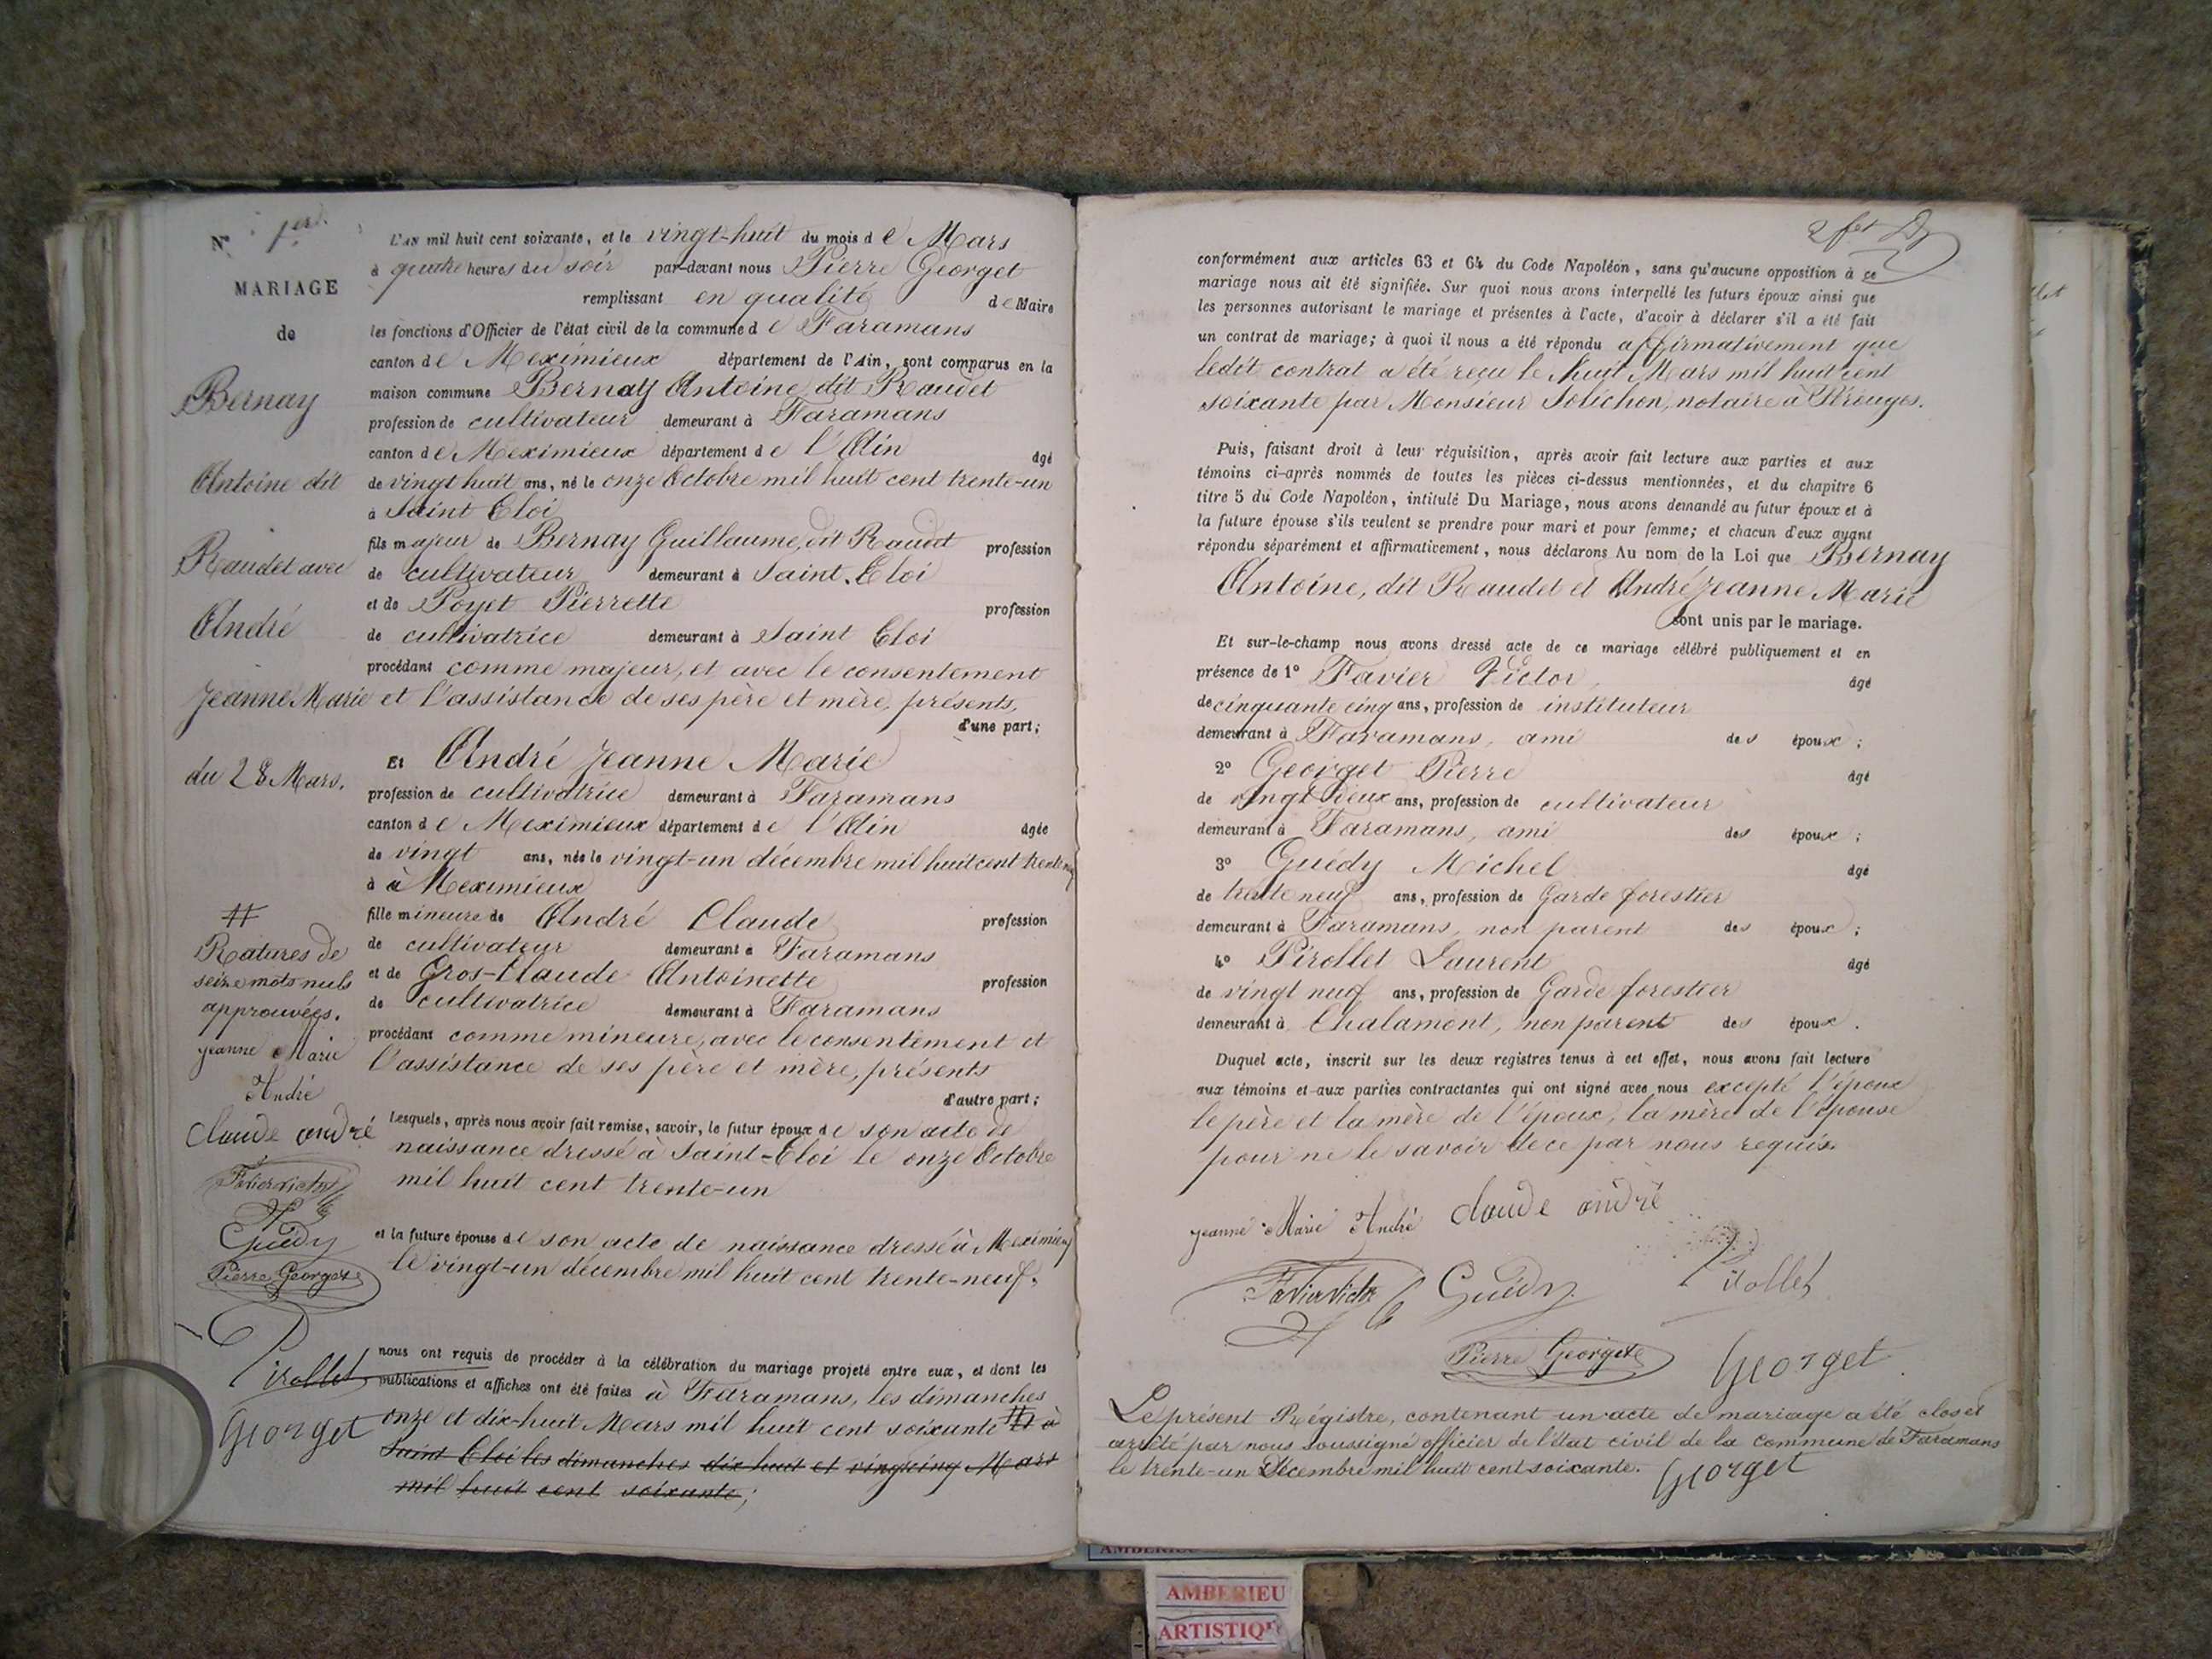 N° 1er
MARIAGE
de
Bernay
Antoine dit
Raudet avec
André
Jeanne Marie
du 28 Mars.
#
Ratures de
seize mots nuls
approuvées.
jeanne Marie
André
Claude andré
Favier victor
Guédy
Pierre Georget
Pirollet
Georget
L'AN mil huit cent soixante, et le vingt-huit du mois de Mars
à quatre heures du soir par-devant nous Pierre Georget
remplissant en qualité de Maire
les fonctions d'Officier de l'état civil de la commune de Faramans
canton de Meximieux département de l'Ain, sont comparus en la
maison commune Bernay Antoine dit Raudet
profession de cultivateur demeurant à Faramans
canton de Meximieux département de l'Ain âgé
de vingt huit ans, né le onze Octobre mil huit cent trente-un
à Saint Eloi
fils majeur de Bernay Guillaume, dit Raudet profession
de cultivateur demeurant à Saint-Eloi
et de Poyet Pierrette profession
de cultivatrice demeurant à Saint Eloi
procédant comme majeur, et avec le consentement
et l'assistance de ses père et mère, présents,
d'une part;
Et André Jeanne Marie
profession de cultivatrice demeurant à Faramans
canton de Meximieux département de l'Ain âgée
de vingt ans, née le vingt-un décembre mil huit cent trente neuf
à à Meximieux
fille mineure de André Claude profession
de cultivateur demeurant à Faramans
et de Gros-Claude Antoinette profession
de cultivatrice demeurant à Faramans
procédant comme mineure, avec le consentement et
l'assistance de ses père et mère, présents
d'autre part;
Lesquels, après nous avoir fait remise, savoir, le futur époux de son acte de
naissance dressé à Saint-Eloi le onze Octobre
mil huit cent trente-un
et la future épouse de son acte de naissance dressé à Meximieux
le vingt-un décembre mil huit cent trente-neuf,
nous ont requis de procéder à la célébration du mariage projeté entre eux, et dont les
publications et affiches ont été faites à Faramans, les dimanches
onze et dix-huit Mars mil huit cent soixante # Et à
Saint Eloi les dimanches dix huit et vingt cinq Mars
mil huit cent soixante;
2 fet
conformément aux articles 63 et 64 du Code Napoléon, sans qu'aucune opposition à ce
mariage nous ait été signifiée. Sur quoi nous avons interpellé les futurs époux ainsi que
les personnes autorisant le mariage et présentes à l'acte, d'avoir à déclarer s'il a été fait
un contrat de mariage; à quoi il nous a été répondu affirmativement que
ledit contrat a été reçu le huit Mars mil huit cent
soixante par Monsieur Jolichon, notaire à Pérouges.
Puis, faisant droit à leur réquisition, après avoir fait lecture aux parties et aux
témoins ci-après nommés de toutes les pièces ci-dessus mentionnées, et du chapitre 6
titre 5 du Code Napoléon, intitulé Du Mariage, nous avons demandé au futur époux et à
la future épouse s'ils veulent se prendre pour mari et pour femme; et chacun d'eux ayant
répondu séparément et affirmativement, nous déclarons Au nom de la Loi que Bernay
Antoine, dit Raudet et André Jeanne Marie
sont unis par le mariage.
Et sur-le-champ nous avons dressé acte de ce mariage célébré publiquement et en
présence de 1° Favier Victor, âgé
de cinquante cinq ans, profession de instituteur
demeurant à Faramans, ami des époux;
2° Georget Pierre âgé
de vingt deux ans, profession de cultivateur
demeurant à Faramans, ami des époux;
3° Guédy Michel âgé
de trente neuf ans, profession de Garde forestier
demeurant à Faramans, non parent des époux;
4° Pirollet Laurent âgé
de vingt neuf ans, profession de Garde forestier
demeurant à Chalamont, non parent des époux.
Duquel acte, inscrit sur les deux registres tenus à cet effet, nous avons fait lecture
aux témoins et aux parties contractantes qui ont signé avec nous excepté l'époux
le père et la mère de l'époux, la mère de l'épouse
pour ne le savoir de ce par nous requis.
jeanne Marie André Claude andré
Favier victor Guédy Pirollet
Pierre Georget Georget
Le présent Régistre, contenant un acte de mariage a été clos et
arrêté par nous soussigné officier de l'état civil de la commune de Faramans
le trente-un Décembre mil huit cent soixante. Georget
AMBERIEU
AMBERIEU
ARTISTIQUE